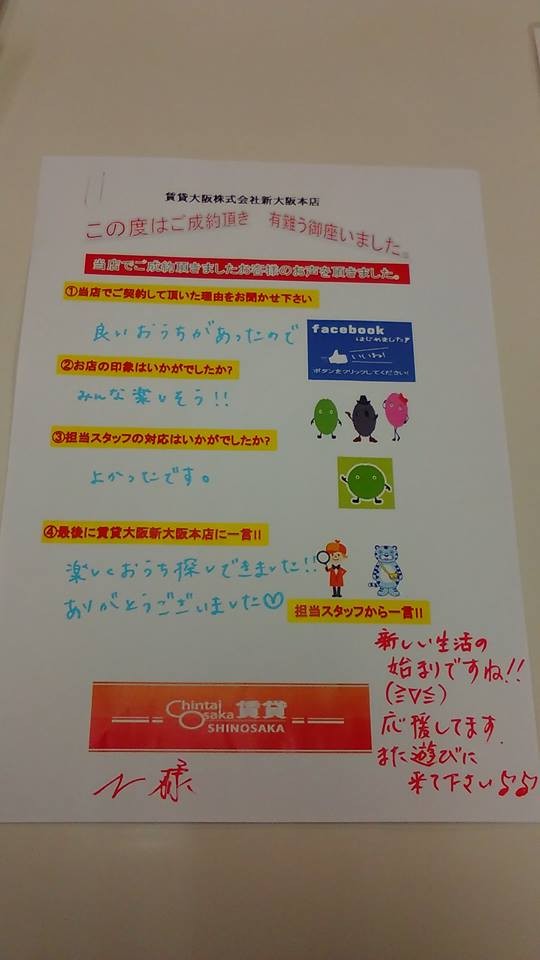 賃貸大阪株式会社新大阪本店
この度はご成約頂き 有難う御座いました。
当店でご成約頂きましたお客様のお声を頂きました。
①当店でご契約して頂いた理由をお聞かせ下さい
良いおうちがあったので
facebook
はじめました!
いいね!
ボタンをクリックしてください!
②お店の印象はいかがでしたか?
みんな楽しそう!!
③担当スタッフの対応はいかがでしたか?
よかったです。
④最後に賃貸大阪新大阪本店に一言!!
楽しくおうち探しできました!!
ありがとうございました♡
担当スタッフから一言!!
新しい生活の
始まりですね!!
(≧∇≦)
応援してます
また遊びに
来て下さい♪♪
Chintai
Osaka 賃貸
SHINOSAKA
N 様